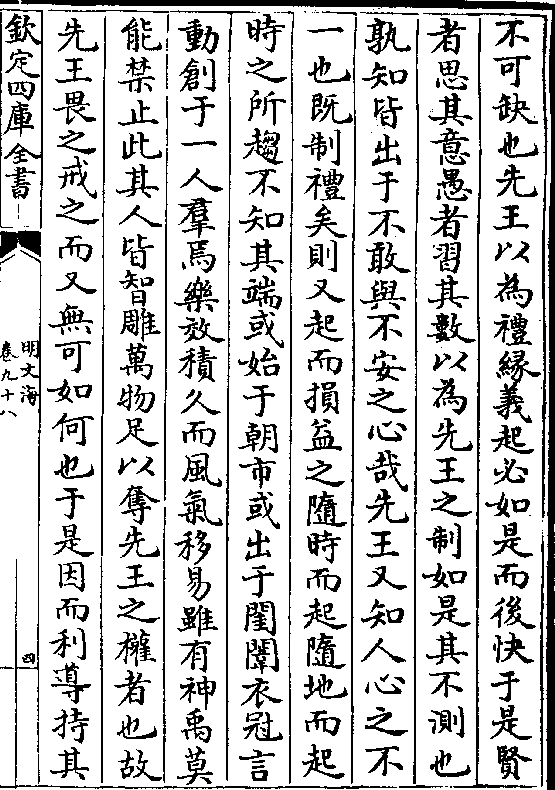 不可缺也先王以為禮緣義起必如是而後快于是賢
者思其意愚者習其數以為先王之制如是其不測也
孰知皆出于不敢與不安之心哉先王又知人心之不
一也既制禮矣則又起而損益之隨時而起隨地而起
時之所趨不知其端或始于朝市或出于閨闥衣冠言
動創于一人羣焉樂效積久而風氣移易雖有神禹莫
能禁止此其人皆智雕萬物足以奪先王之權者也故
先王畏之戒之而又無可如何也于是因而利導持其
欽定四庫全書
明文海
卷九十八
四